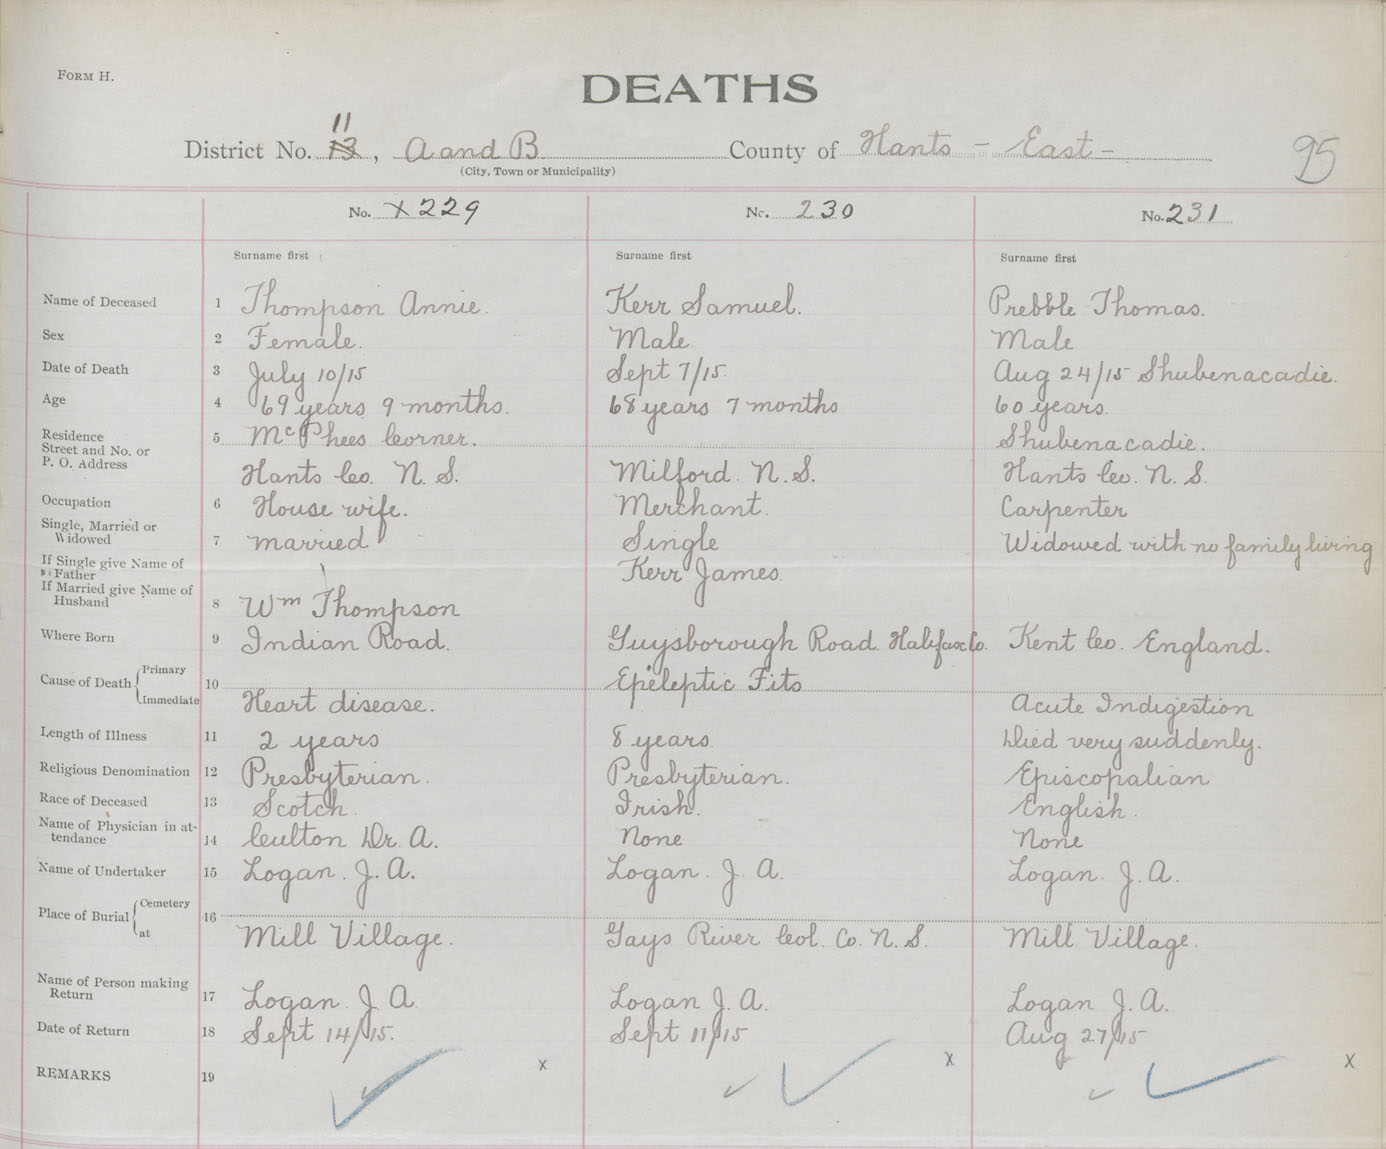 FORM H.
DEATHS
11
District No. 13, A and B County of Hants - East -
95
(City, Town or Municipality)
No. X 229 No. 230 No. 231
Surname first Surname first Surname first
Name of Deceased 1 Thompson Annie. Kerr Samuel. Prebble Thomas.
Sex 2 Female. Male. Male
Date of Death 3 July 10/15 Sept 7/15 Aug 24/15 Shubenacadie.
Age 4 69 years 9 months. 68 years 7 months 60 years.
Residence 5 McPhees Corner. Shubenacadie.
Street and No. or
P. O. Address Hants Co. N. S. Milford. N. S. Hants Co. N. S.
Occupation 6 House wife. Merchant. Carpenter
Single, Married or
Widowed 7 married Single Widowed with no family living
If Single give Name of
Father Kerr James.
If Married give Name of
Husband 8 Wm Thompson
Where Born 9 Indian Road. Guysborough Road. Halifax Co. Kent Co. England.
Cause of Death Primary 10 Epeleptic Fits
Immediate Heart disease. Acute Indigestion
Length of Illness 11 2 years 8 years Died very suddenly.
Religious Denomination 12 Presbyterian. Presbyterian. Episcopalian
Race of Deceased 13 Scotch. Irish. English.
Name of Physician in at-
tendance 14 Coulton Dr. A. None None
Name of Undertaker 15 Logan. J. A. Logan. J. A. Logan. J. A.
Place of Burial Cemetery 16
at Mill Village. Gays River Col. Co. N. S. Mill Village.
Name of Person making
Return 17 Logan. J. A. Logan J. A. Logan J. A.
Date of Return 18 Sept 14/15. Sept 11/15 Aug 27/15
REMARKS 19 x x x